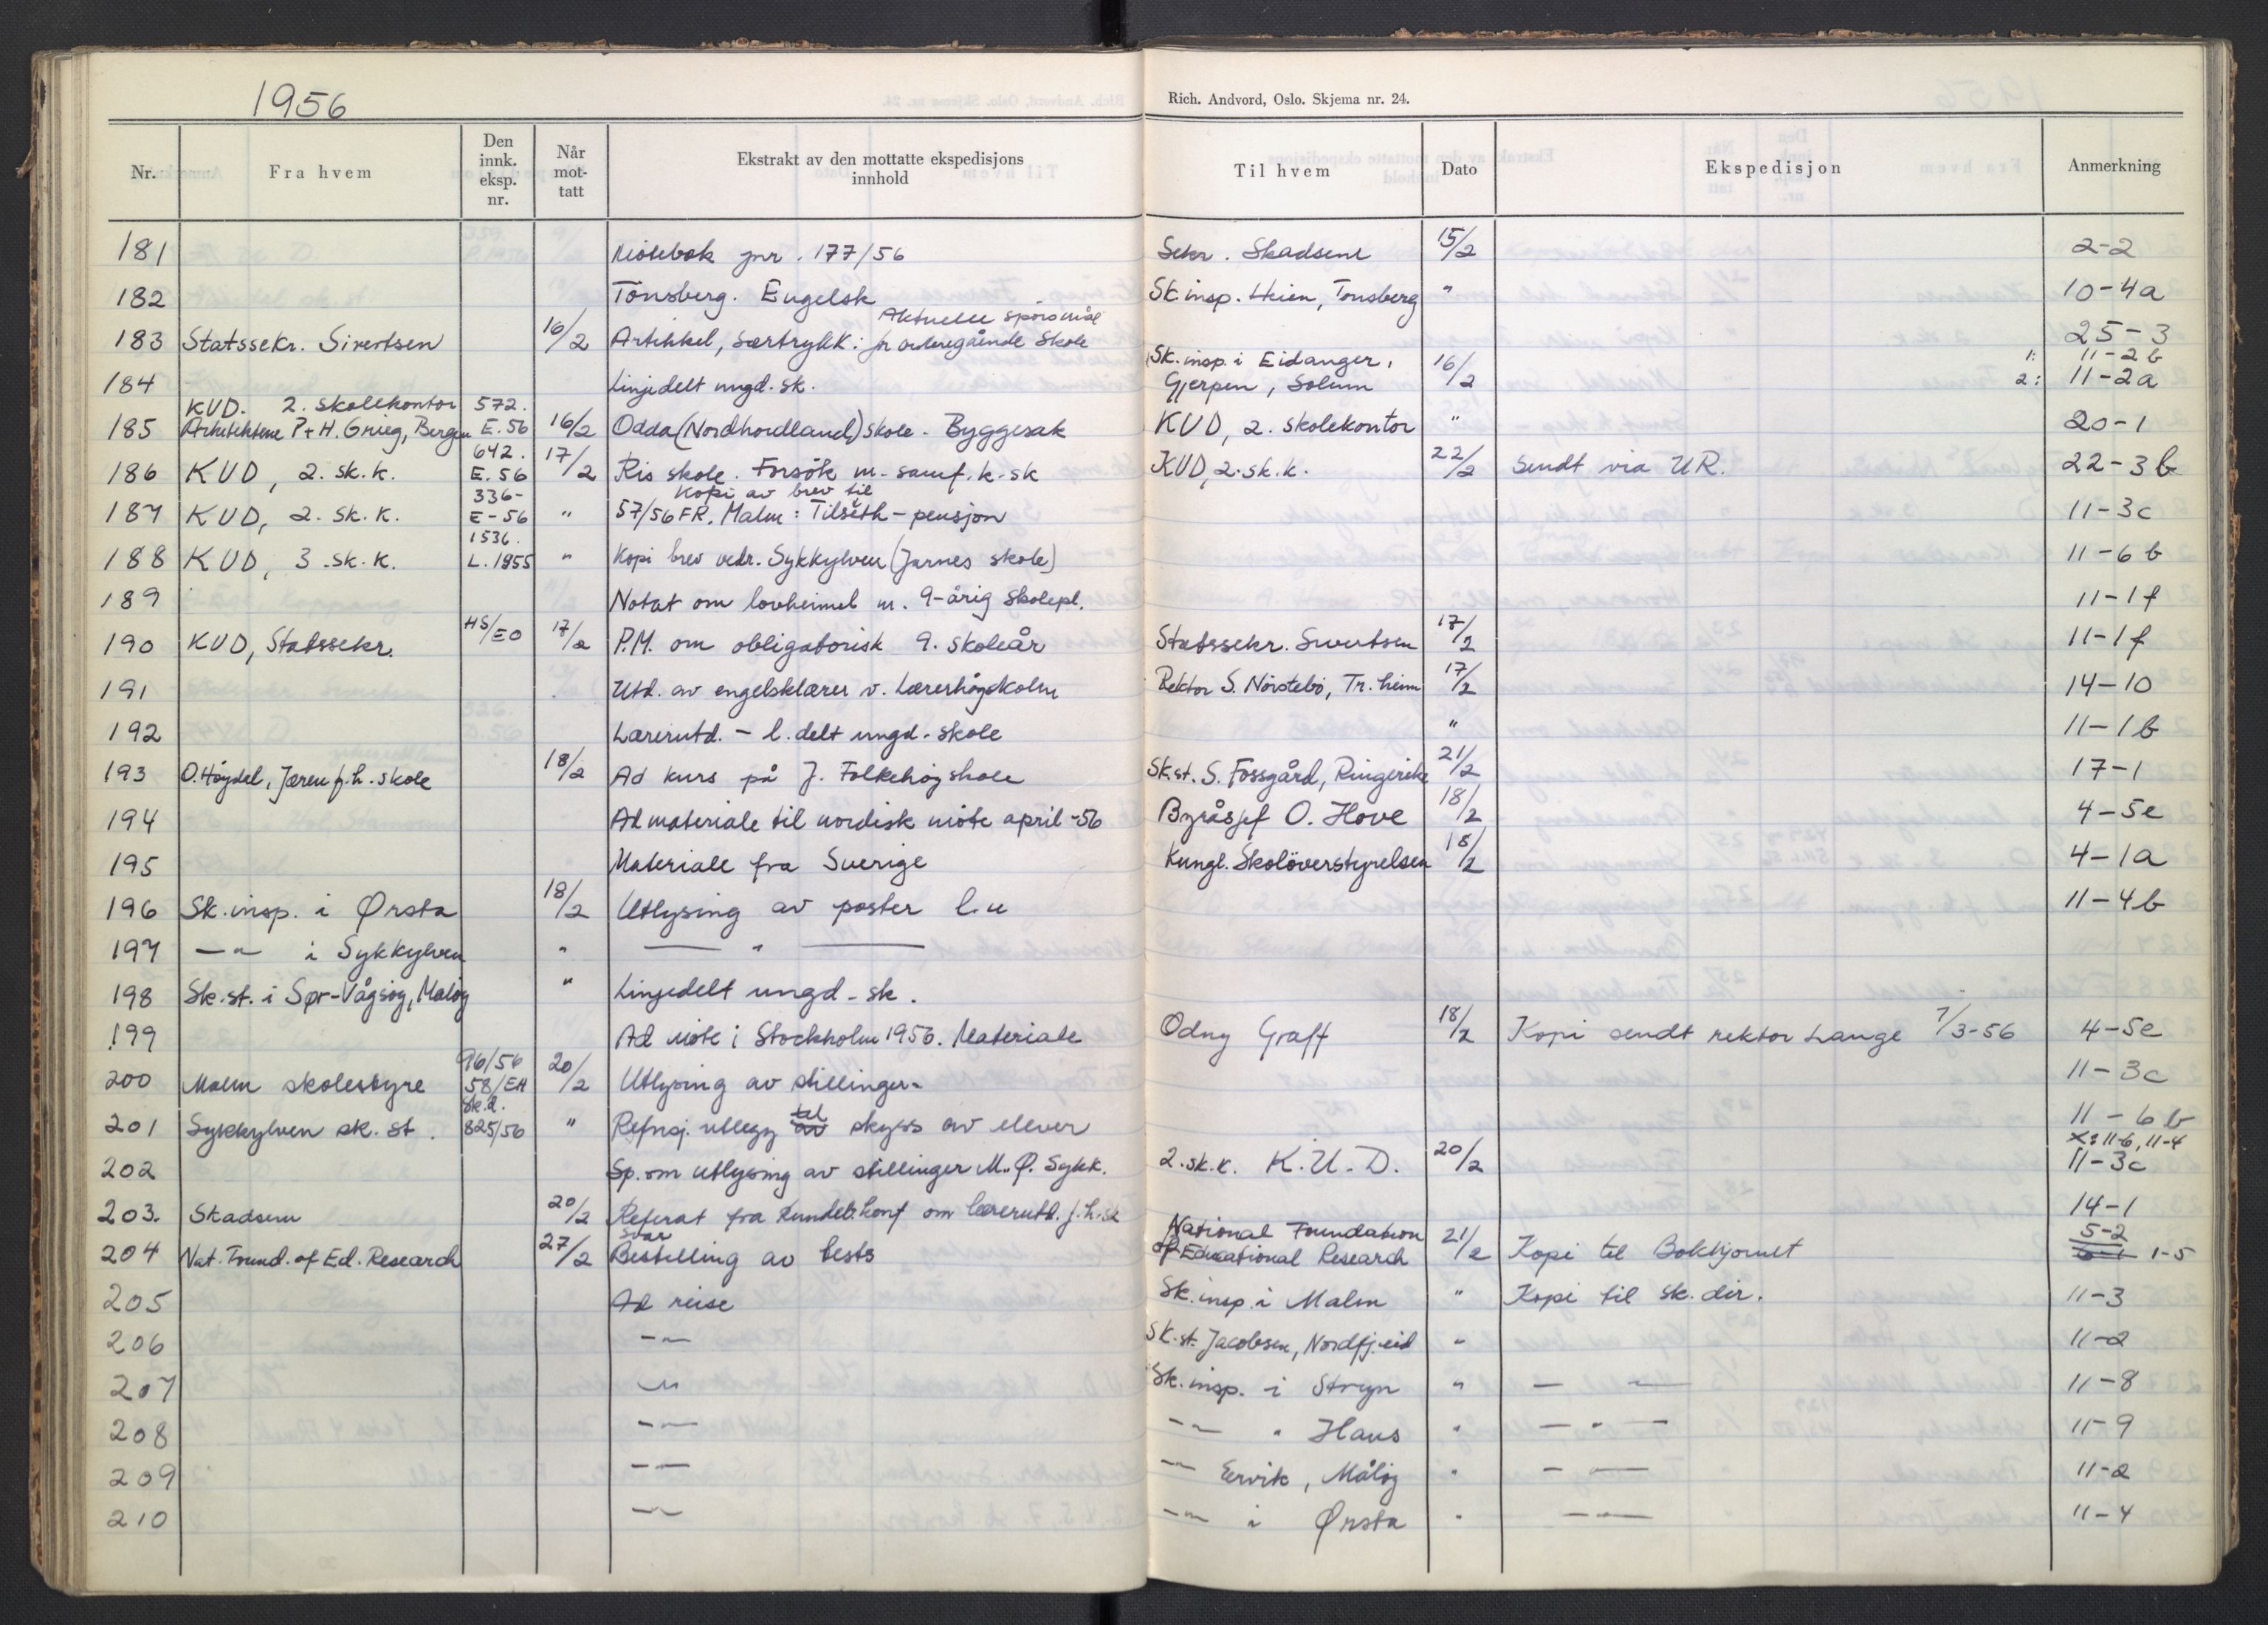 1956
Rich. Andvord, Oslo. Skjema nr. 24.
Nr. Fra hvem Den innk. eksp. nr. Når mot-tatt Ekstrakt av den mottatte ekspedisjons innhold Til hvem Dato Ekspedisjon Anmerkning
181 Møtebok jnr. 177/56 Sekr. Skadsem 15/2 2-2
182 Tønsberg. Engelsk Sk.insp. Heien, Tønsberg " 10-4a
183 Statssekr. Sivertsen 16/2 Artikkel, særtrykk: Aktuelle spörsmål for videregående skole 25-3
184 Linjedelt ungd.sk. Sk.insp. i Eidanger, Gjerpen, Solum 16/2 1: 11-2b 2: 11-2a
185 KUD. 2. skolekontor Arkitektene P+H. Grieg, Bergen 572. E.56 16/2 Odda (Nordhordland) skole. Byggesak KUD, 2. skolekontor " 20-1
186 KUD, 2. sk.k. 642. E.56 17/2 Ris skole. Forsök m. samf.k.sk KUD, 2.sk.k. 22/2 Sendt via UR. 22-3b
187 KUD, 2. sk.k. 336- E-56 " Kopi av brev til 57/56 FR. Malm: Tilseth-pensjon 11-3c
188 KUD, 3.sk.k. 1536. L.1955 " Kopi brev vedr. Sykkylven (Jarnes skole) 11-6b
189 Notat om lovheimel m. 9-årig skolepl. 11-1f
190 KUD, Statssekr. HS/EO 17/2 P.M. om obligatorisk 9. skoleår Statssekr. Sivertsen 17/2 11-1f
191 Utd. av engelsklærer v. Lærerhøgskolen Rektor S. Nörstebö, Tr.heim 17/2 14-10
192 Lærerutd. - l.delt ungd.skole " 11-1b
193 O. Høydal, Jæren f.h.skole 18/2 Ad kurs på J. Folkehøgskole Sk.st. S. Fossgård, Ringerike 21/2 17-1
194 Ad materiale til nordisk möte april-56 Byråsjef O. Hove 18/2 4-5e
195 Materiale fra Sverige Kungl. Skolöverstyrelsen 18/2 4-1a
196 Sk.insp. i Ørsta 18/2 Utlysing av poster l.u 11-4b
197 — " — i Sykkylven " — " —
198 Sk.st. i Sør-Vågsøy, Måløy " Linjedelt ungd-sk.
199 Ad möte i Stockholm 1956. Materiale Odny Graff 18/2 Kopi sendt rektor Lange 7/3-56 4-5e
200 Malm skolestyre 96/56 58/EH 20/2 Utlysing av stillinger. 11-3c
201 Sykkylven sk.st. Sk.d. 825/56 " Refusj. utlegg til av skyss av elever 11-6b
202 Sp. om utlysing av stillinger M. Ø. Sykk. 2.sk.k. K.U.D. 20/2 x: 11-6, 11-4 11-3c
203. Skadsem 20/2 Referat fra Rundeb.konf om lærerutd. f.h.sk 14-1
204 Nat. Found. of Ed. Research 27/2 Svar Bestilling av tests National Foundation of Educational Research 21/2 Kopi til Bokhjornet 5-2 1-5
205 Ad reise Sk.insp. i Malm " Kopi til sk.dir. 11-3
206 — " — Sk.st. Jacobsen, Nordfj.eid " 11-2
207 — " — Sk.insp. i Stryn " — " — 11-8
208 — " — — " — " Haus " — " — 11-9
209 — " — — " — Ervik, Måløy " — " — 11-2
210 — " — — " — i Ørsta " — " — 11-4